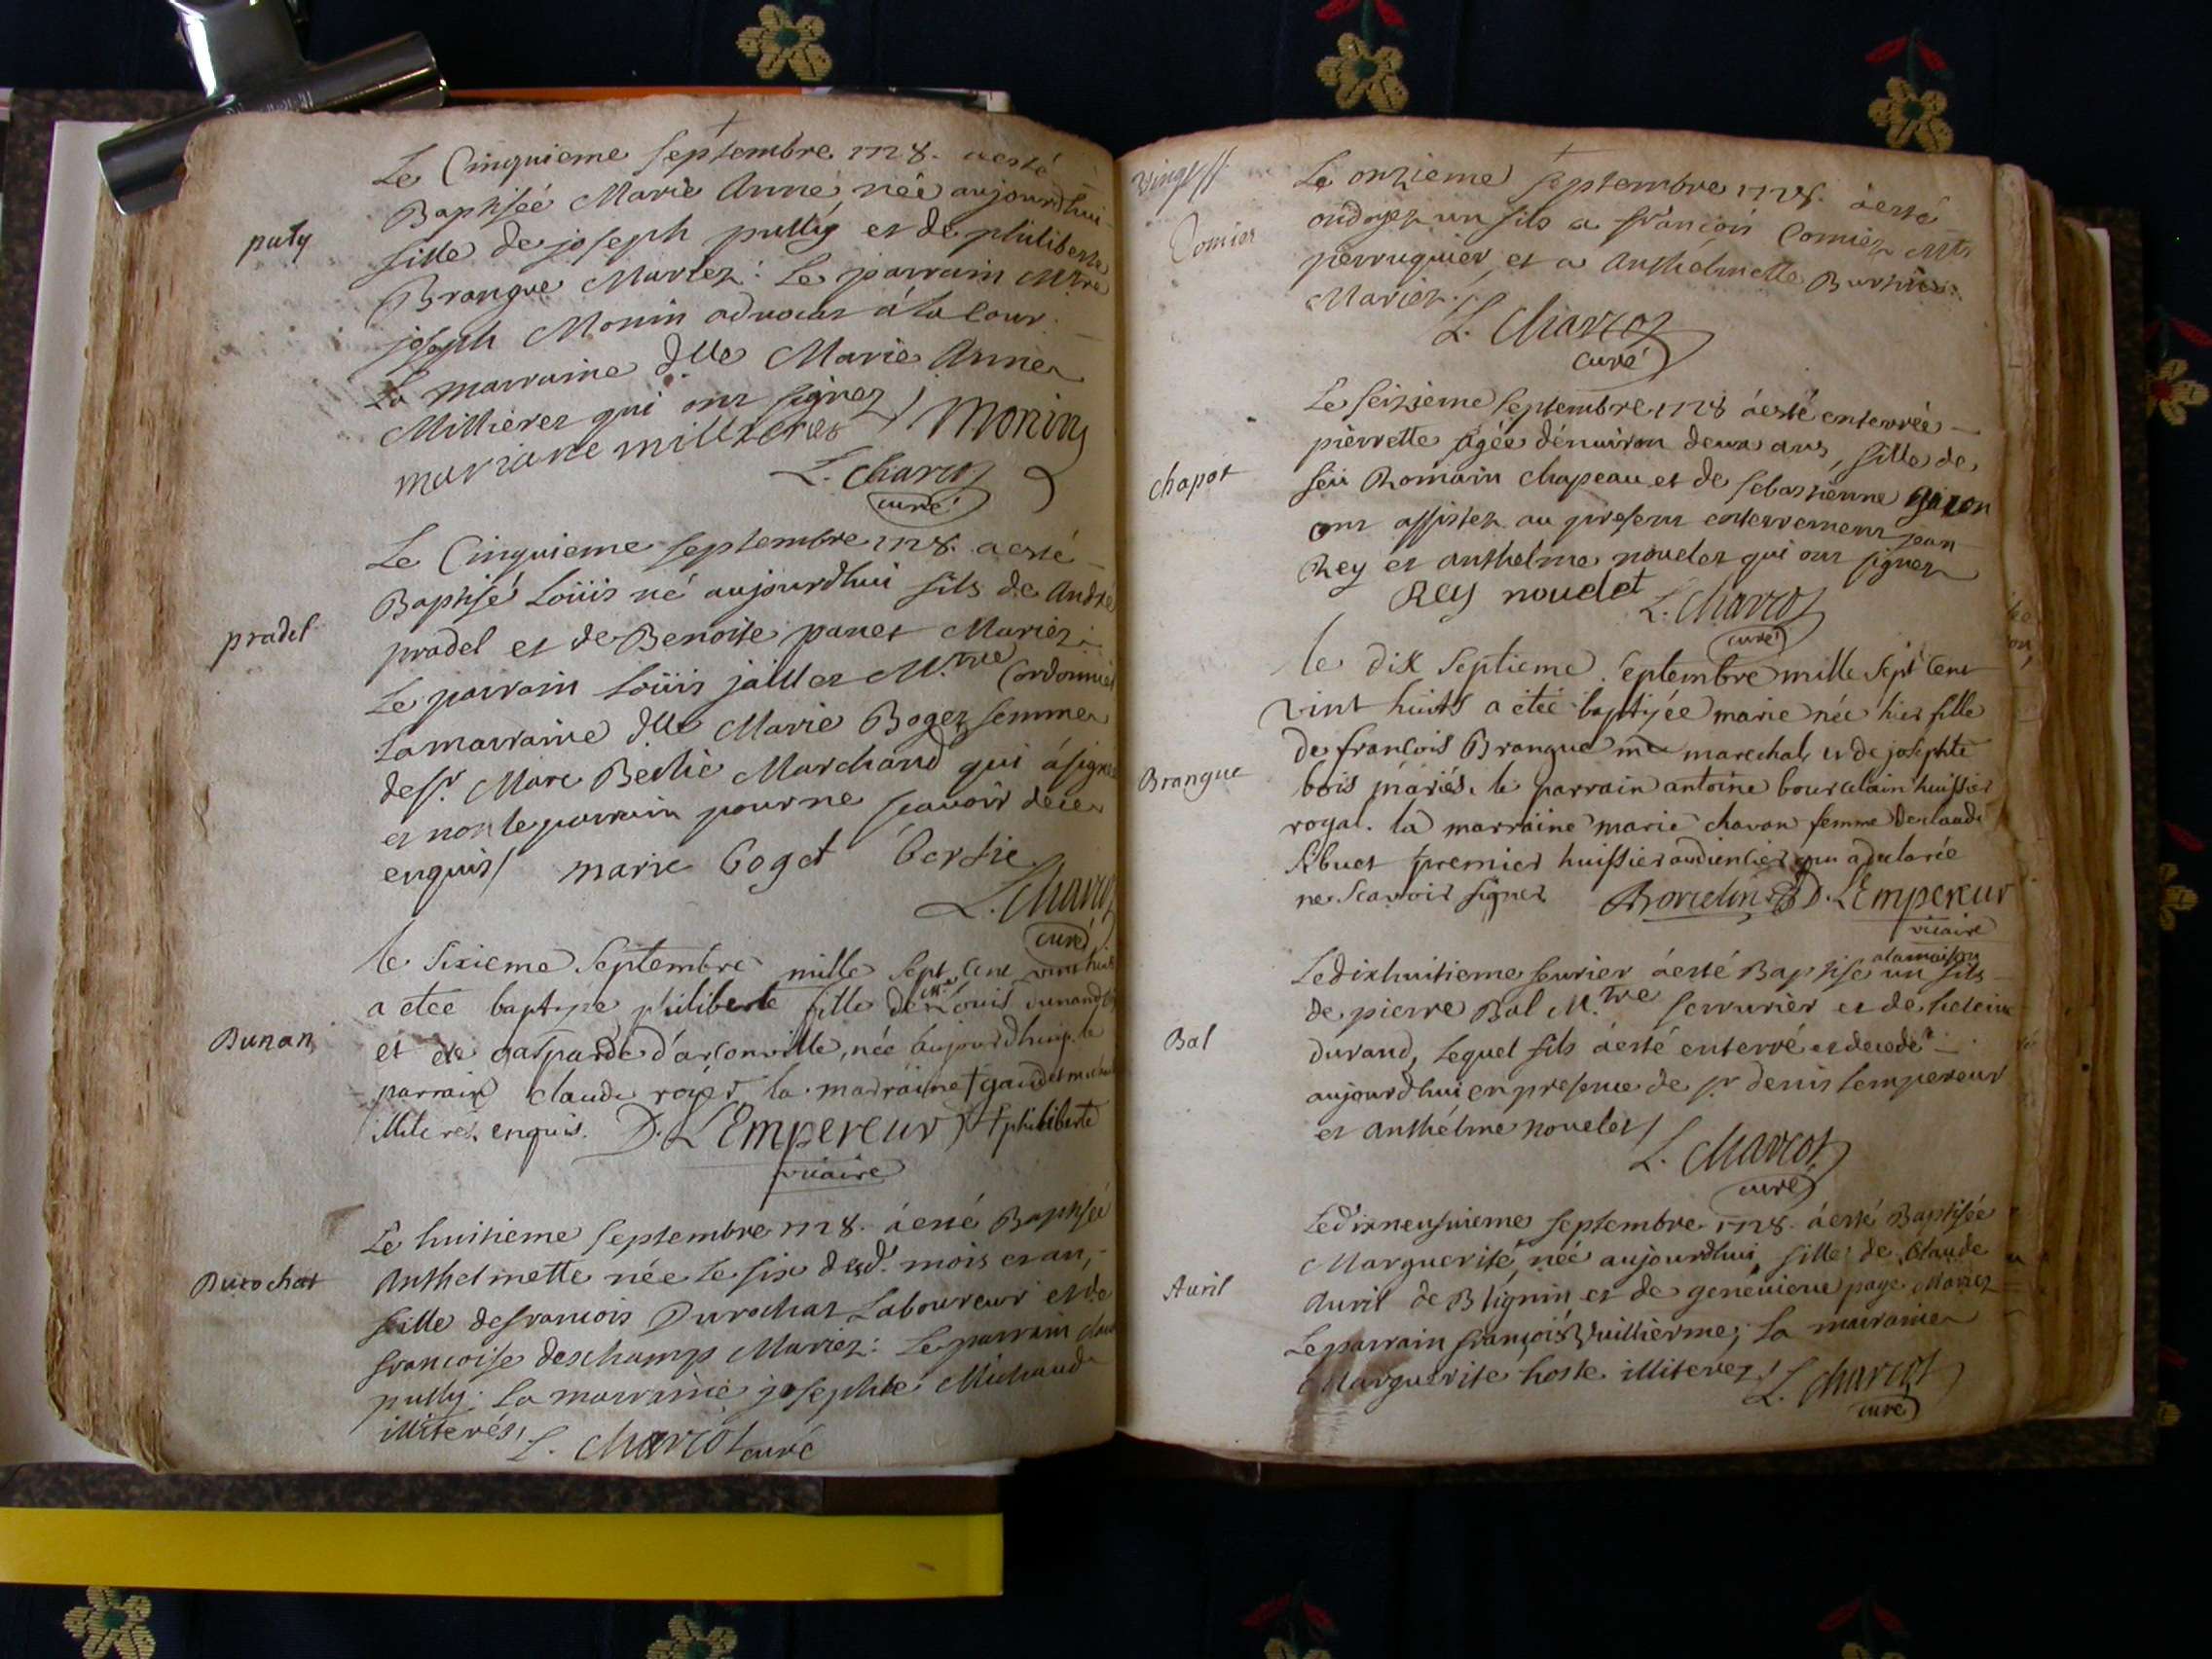 Le Cinquieme septembre 1728. a esté
Baptisée Marie Anne, née aujourdhui
puty
fille de joseph pullig et de philiberte
Brangue Mariez: Le parrain Mtre
joseph Monin advocat à la Cour.
La marraine dlle Marie Anne
Millieres qui ont signez / Monin
mariane millieres
L. Charcot
curé
Le Cinquieme septembre 1728. a esté
Baptisé Loüis né aujourdhui fils de André
pradel
pradel et de Benoite panet Mariez:
Le parrain Loüis jallier M.tre Cordonnier
La marraine dlle Marie Boger femme
de sr. Marc Berlié Marchand qui a signé
et non le parrain pour ne scavoir de ce
enquis / marie boget bertie
L. Charcot
curé
le sixieme Septembre mille sept cent vint huit
a etee baptisée philiberte fille de Mre Louis dunand
Dunan
et de gasparde d'arconville, née aujourdhuy. le
parrain claude royer la marraine + gaudet
illiterez enquis. D. L'Empereur + philiberte
vicaire
Le huitieme septembre 1728. a esté Baptisée
Durochat
Anthelmette née le six dud. mois et an,
fille de francois Durochat Laboureur et de
francoise deschamp Mariez: Le parrain
pully. La marraine josephte Michaud
illiterés, L. Charcot curé
Le onzieme septembre 1728. a esté
Comier
ondoyez un fils a francois Comier Mtre
perruquier, et a Anthelmette
Mariez.
L. Charcot
curé
Le seizieme septembre 1728 a esté enterrée
pierrette agée dénuiron deux ans, fille de
chapot
feu Romain chapeau et de sebastienne
ont assistez au present enterrement jean
Rey et anthelme nouelet qui ont signez
Rey noudet L. Charcot
curé
le dix septieme septembre mille sept cent
vint huits a etée baptisée marie née hier fille
de francois Brangue me marechal, et de josephte
Brangue
bois mariés. le parrain antoine bourcelain huissier
royal. la marraine marie chavan femme de claude
Sibuet premier huissier audiencier qui a declarée
ne scavoir signer D. L'Empereur
vicaire
Le dixhuitieme feurier a esté Baptisé alamaison un fils
de pierre Bal M.tre serrurier et de
Bal
durand, lequel fils a esté enterré et decedé
aujourdhui en presence de sr denis lempereur
et anthélme nouelet /
L. Charcot
curé
Le dixneufuieme septembre 1728. a esté Baptisée
Marguerite, née aujourdhui, fille de Claude
Auril
Auril de Blignin et de geneuieue page Mariez
Le parrain françois Vuillierme; la marraine
Marguerite hoste illiterez / L. Charcot
curé